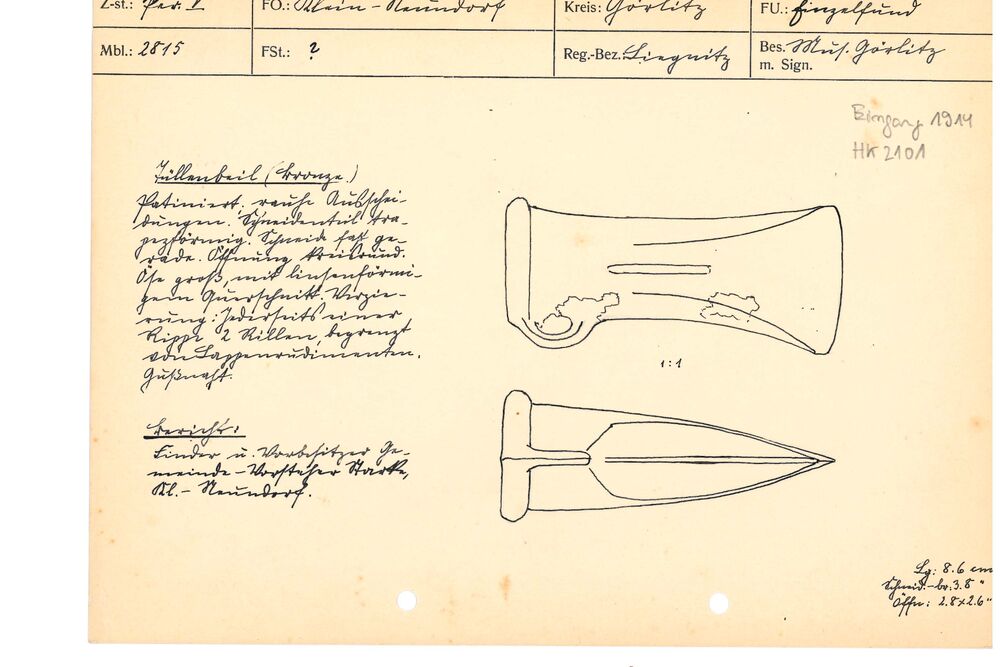 Z-st.: Per. V FO.: Klein-Neundorf Kreis: Görlitz FU.: Einzelfund
Mbl.: 2815 FSt.: ? Reg.-Bez. Liegnitz Bes. Mus. Görlitz
m. Sign.
Eingang 1914
HK 2101
Tüllenbeil (Bronze.)
Patiniert. rauhe Ausschei-
dungen. Schneidenteil tra-
pezförmig. Schneide fast ge-
rade. Öffnung kreisrund.
Öse groß, mit linsenförmi-
gem Querschnitt. Verzie-
rung: Jederseits einer
Rippe 2 Rillen, begrenzt
von Lappenrudimenten.
Gußnaht.
1:1
Bericht:
Finder u. Vorbesitzer Ge-
meinde-Vorsteher Starke,
Kl.-Neundorf.
Lg: 8.6 cm
Schneid.-br: 3.8 "
Öffn: 2.8x2.6 "